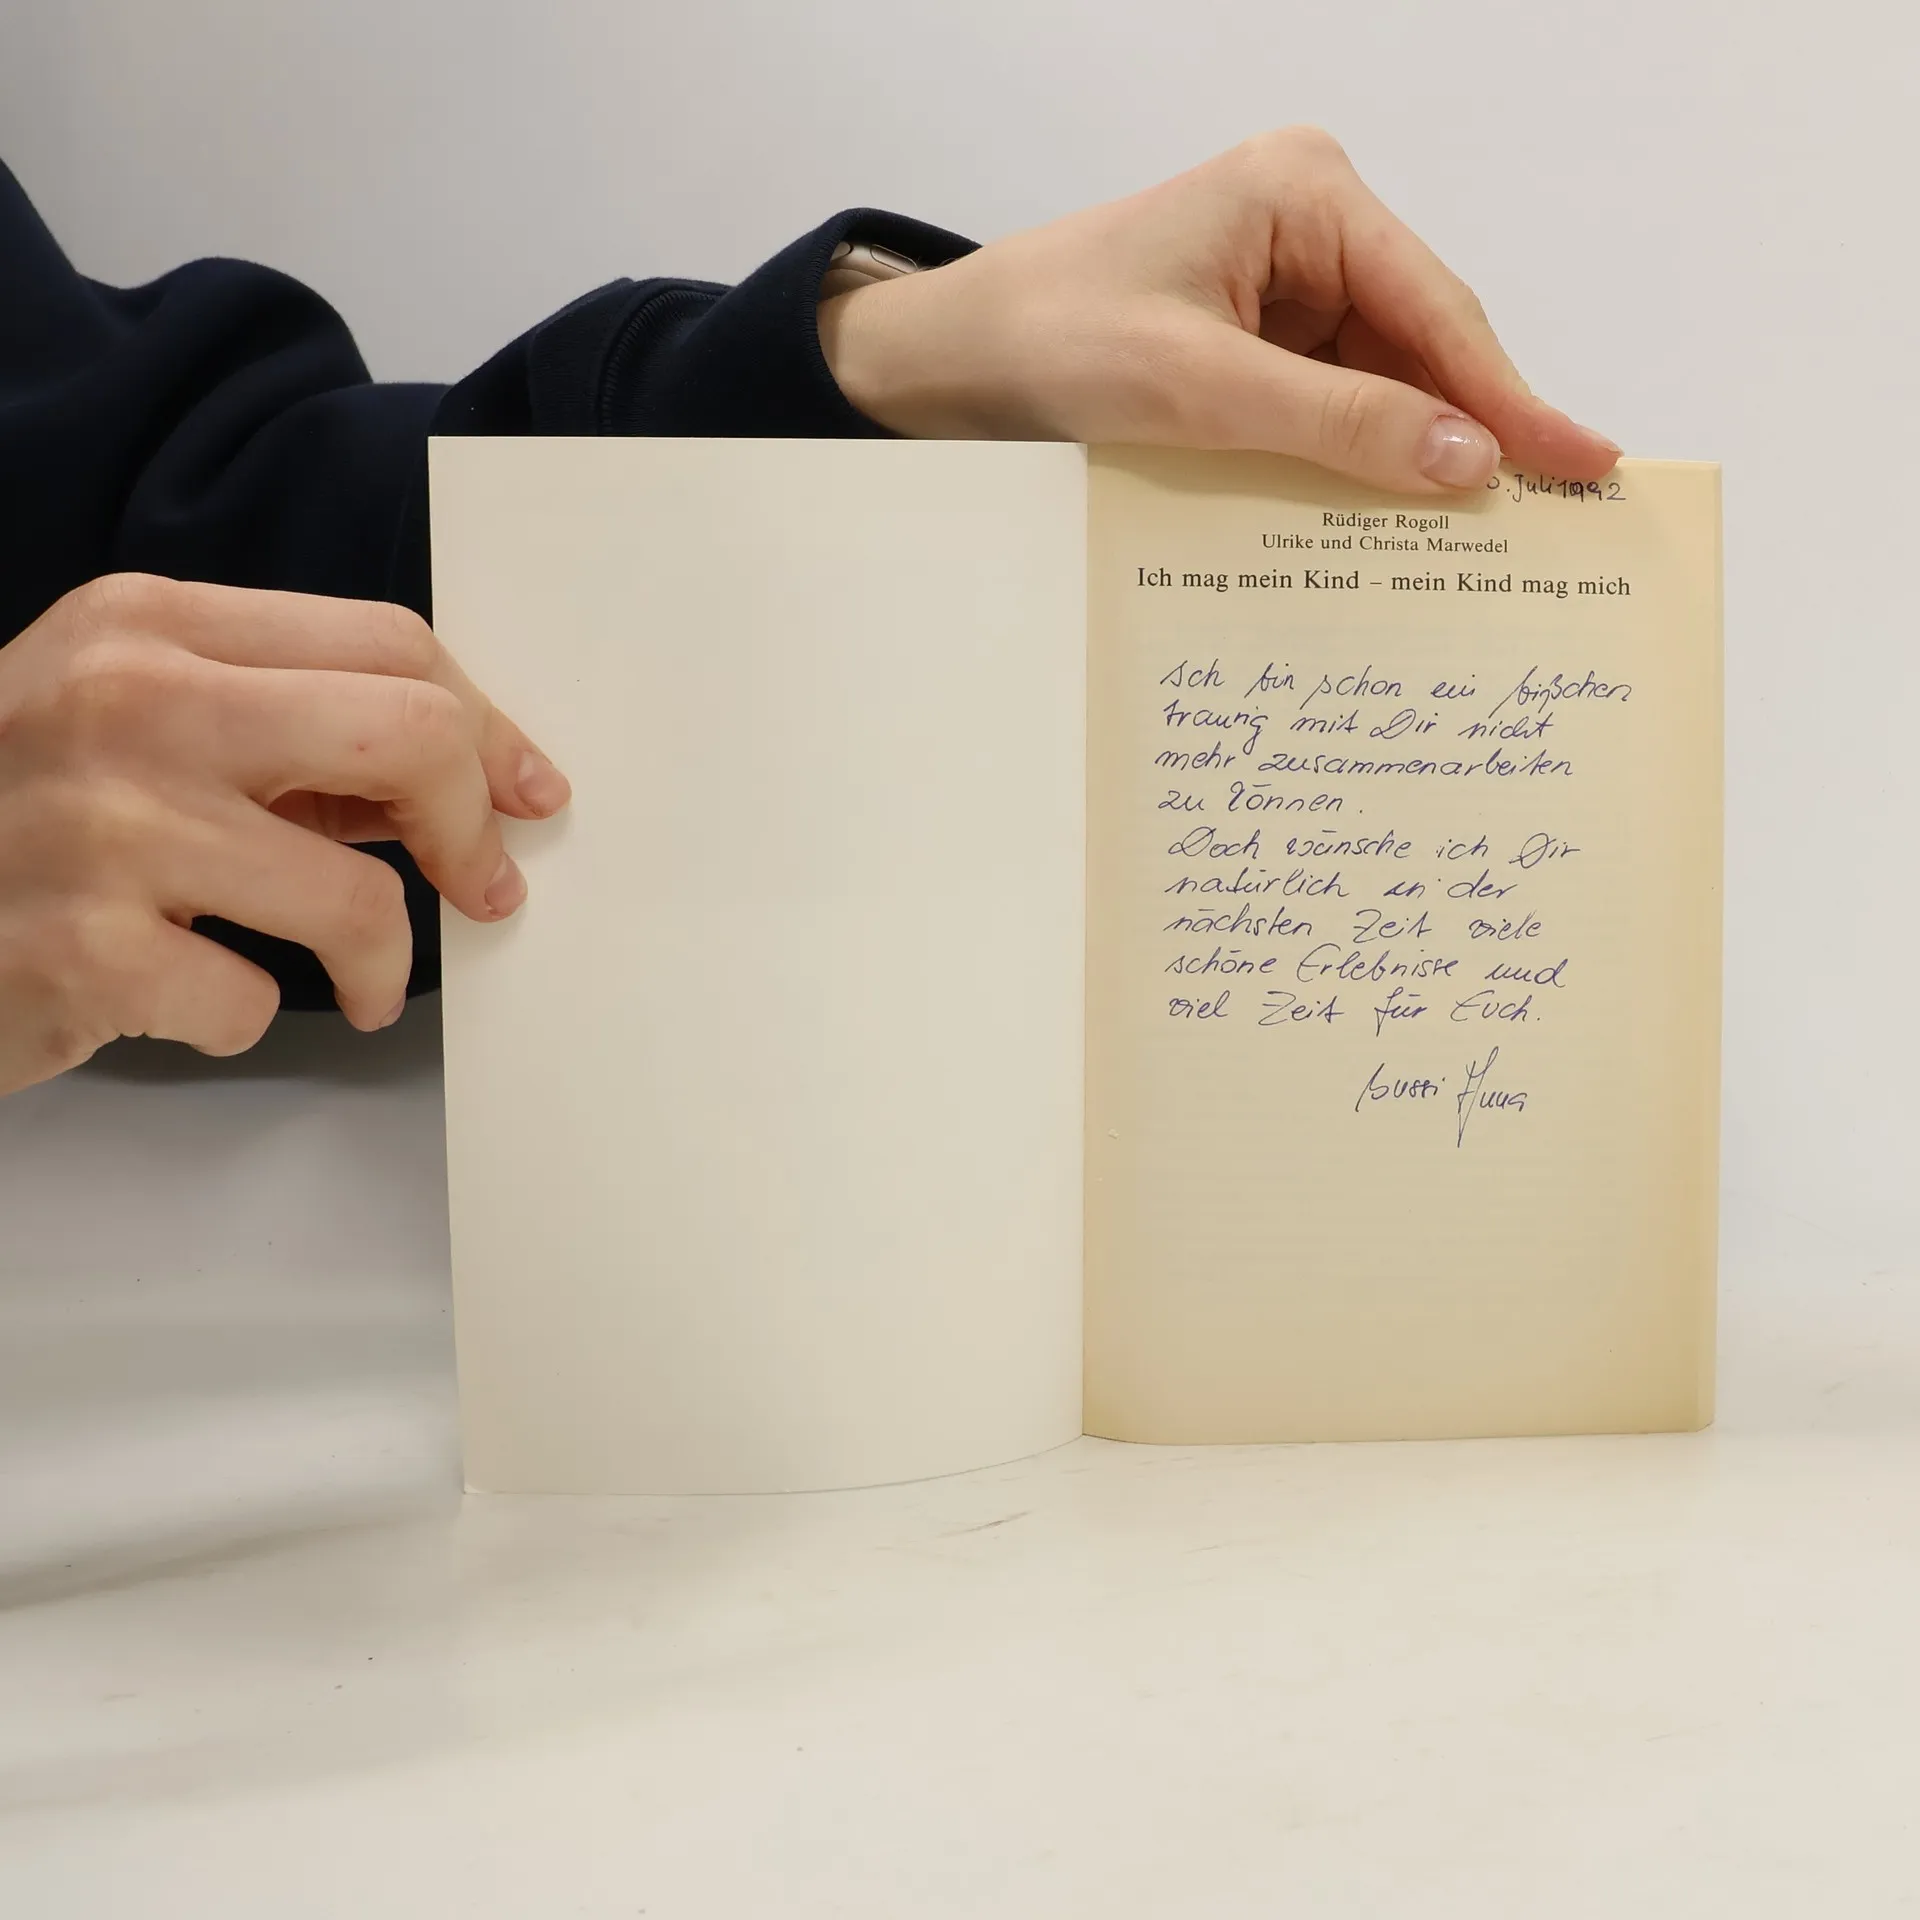 0. Juli 1992
Rüdiger Rogoll
Ulrike und Christa Marwedel
Ich mag mein Kind – mein Kind mag mich
Ich bin schon ein bißchen
traurig mit Dir nicht
mehr zusammenarbeiten
zu können.
Doch wünsche ich Dir
natürlich in der
nächsten Zeit viele
schöne Erlebnisse und
viel Zeit für Euch.
Bussi Anna